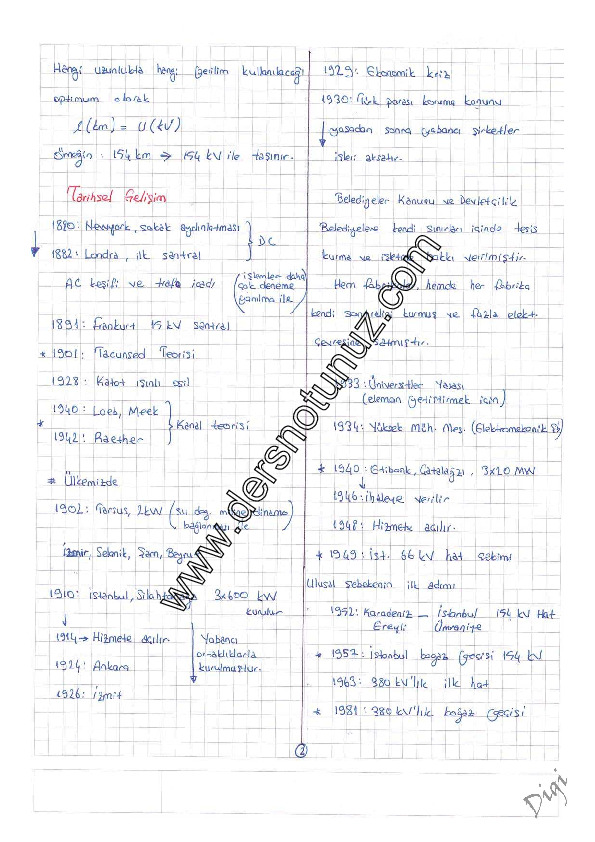 Hangi uzunlukta hangi gerilim kullanılacağı
optimum olarak
l(km) = U(kV)
Örneğin: 154 km → 154 kV ile taşınır.
Tarihsel Gelişim
1880: Newyork, sokak aydınlatması
1882: Londra, ilk santral
} DC
AC keşifi ve trafo icadı (işlemler daha çok deneme yanılma ile)
1891: Frankurt 15 kV santral
* 1901: Tacunsed Teorisi
1928: Katot ışınlı osil
1940: Loeb, Meek
* 1942: Raether
} Kanal teorisi
# Ülkemizde
1902: Tarsus, 2kW (su değ. dinamo bağlanması ile)
İzmir, Selanik, Şam, Beyrut
1910: istanbul, Silahtarağa 3x600 kW
kurulur
1914 → Hizmete açılır
1924: Ankara
1926: izmit
Yabancı
ortaklıklarla
kurulmuştur.
1929: Ekonomik kriz
1930: Türk parası koruma kanunu
yasadan sonra yabancı şirketler
işleri aksatır.
Belediyeler Kanunu ve Devletçilik
Belediyelere kendi sınırları içinde tesis
kurma ve işletme hakkı verilmiştir.
Hem fabrikalar, hemde her fabrika
kendi santralini kurmuş ve fazla elekt.
çevresine satmıştır.
1933: Üniversitler Yasası
(eleman yetiştirmek için)
1934: Yüksek Müh. Mes. (Elektromekanik)
* 1940: Etibank, Çatalağzı, 3x20 MW
1946: ihaleye verilir
1948: Hizmete açılır.
* 1949: ist. 66 kV hat çekimi
Ulusal şebekenin ilk adımı
1952: Karadeniz Ereyli – istanbul Ümraniye 154 kV Hat
* 1957: istanbul boğaz geçişi 154 kV
1963: 380 kV'lık ilk hat
* 1981: 380 kV'lık boğaz geçişi
2
www.dersnotunuz.com
Digi